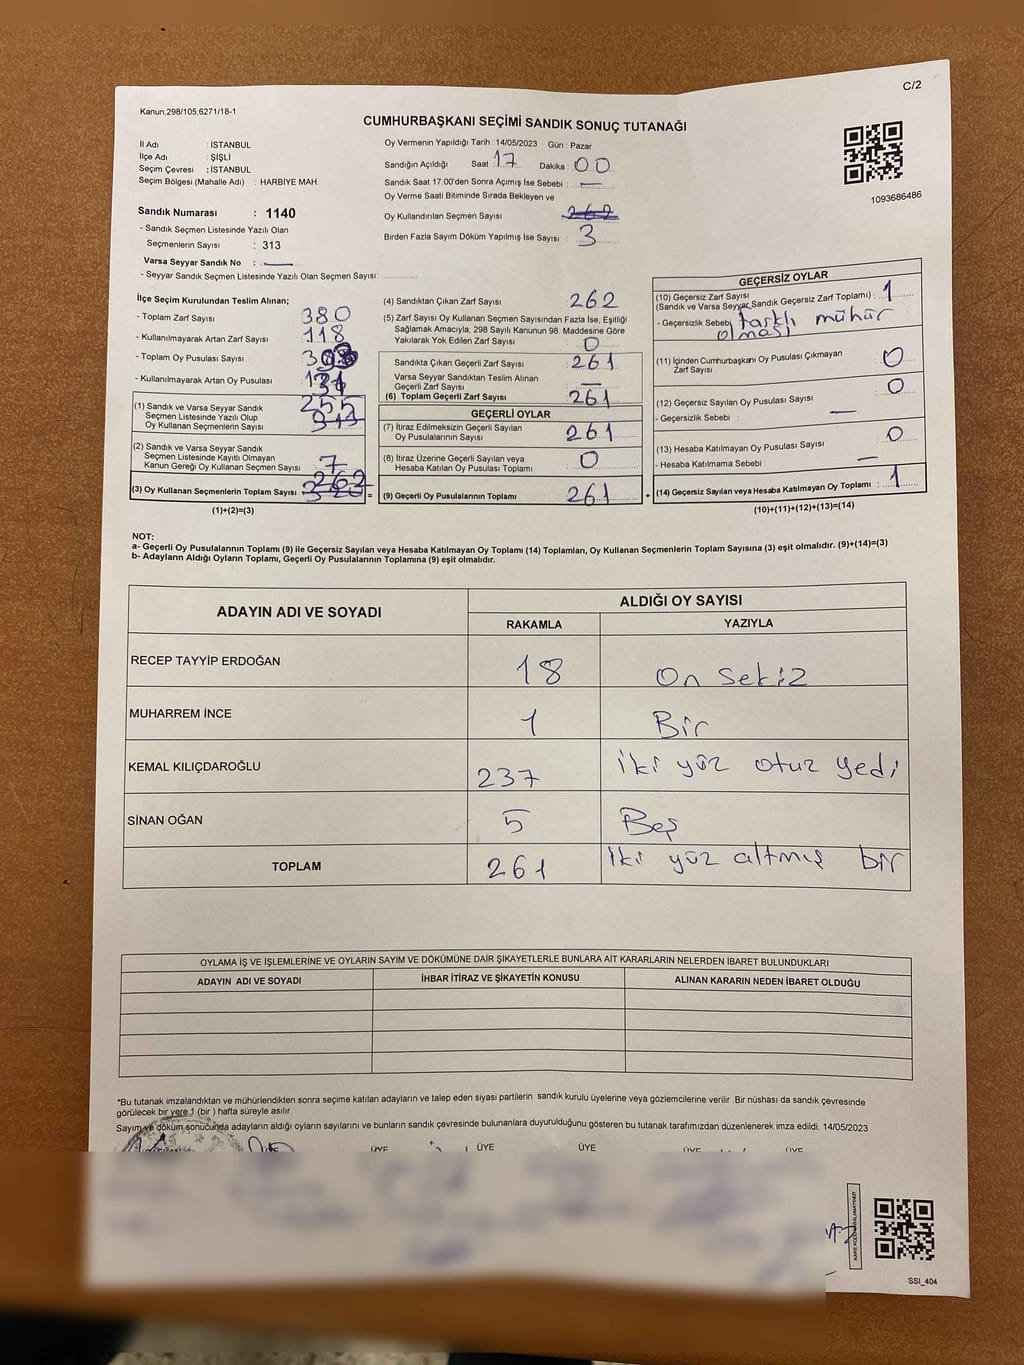 C/2
Kanun,298/105,6271/18-1
CUMHURBAŞKANI SEÇİMİ SANDIK SONUÇ TUTANAĞI
İl Adı : İSTANBUL
İlçe Adı : ŞİŞLİ
Seçim Çevresi : İSTANBUL
Seçim Bölgesi (Mahalle Adı) : HARBİYE MAH.
Sandık Numarası : 1140
- Sandık Seçmen Listesinde Yazılı Olan
Seçmenlerin Sayısı : 313
Varsa Seyyar Sandık No : —
- Seyyar Sandık Seçmen Listesinde Yazılı Olan Seçmen Sayısı:
Oy Vermenin Yapıldığı Tarih : 14/05/2023 Gün : Pazar
Sandığın Açıldığı Saat : 17 Dakika : 00
Sandık Saat 17:00'den Sonra Açımış İse Sebebi : —
Oy Verme Saati Bitiminde Sırada Bekleyen ve
Oy Kullandırılan Seçmen Sayısı : 262
Birden Fazla Sayım Döküm Yapılmış İse Sayısı : 3
1093686486
İlçe Seçim Kurulundan Teslim Alınan;
- Toplam Zarf Sayısı 380
- Kullanılmayarak Artan Zarf Sayısı 118
- Toplam Oy Pusulası Sayısı
- Kullanılmayarak Artan Oy Pusulası
(1) Sandık ve Varsa Seyyar Sandık
Seçmen Listesinde Yazılı Olup
Oy Kullanan Seçmenlerin Sayısı 255 313
(2) Sandık ve Varsa Seyyar Sandık
Seçmen Listesinde Kayıtlı Olmayan
Kanun Gereği Oy Kullanan Seçmen Sayısı 7
(3) Oy Kullanan Seçmenlerin Toplam Sayısı 262 =
(1)+(2)=(3)
(4) Sandıktan Çıkan Zarf Sayısı 262
(5) Zarf Sayısı Oy Kullanan Seçmen Sayısından Fazla İse, Eşitliği
Sağlamak Amacıyla; 298 Sayılı Kanunun 98. Maddesine Göre
Yakılarak Yok Edilen Zarf Sayısı 0
Sandıkta Çıkan Geçerli Zarf Sayısı 261
Varsa Seyyar Sandıktan Teslim Alınan
Geçerli Zarf Sayısı —
(6) Toplam Geçerli Zarf Sayısı 261
GEÇERLİ OYLAR
(7) İtiraz Edilmeksizin Geçerli Sayılan
Oy Pusulalarının Sayısı 261
(8) İtiraz Üzerine Geçerli Sayılan veya
Hesaba Katılan Oy Pusulası Toplamı 0
(9) Geçerli Oy Pusulalarının Toplamı 261 +
GEÇERSİZ OYLAR
(10) Geçersiz Zarf Sayısı
(Sandık ve Varsa Seyyar Sandık Geçersiz Zarf Toplamı) : 1
- Geçersizlik Sebebi farklı mühür
olması
(11) İçinden Cumhurbaşkanı Oy Pusulası Çıkmayan
Zarf Sayısı 0
(12) Geçersiz Sayılan Oy Pusulası Sayısı 0
- Geçersizlik Sebebi : —
(13) Hesaba Katılmayan Oy Pusulası Sayısı 0
- Hesaba Katılmama Sebebi : —
(14) Geçersiz Sayılan veya Hesaba Katılmayan Oy Toplamı : 1
(10)+(11)+(12)+(13)=(14)
NOT:
a- Geçerli Oy Pusulalarının Toplamı (9) ile Geçersiz Sayılan veya Hesaba Katılmayan Oy Toplamı (14) Toplamları, Oy Kullanan Seçmenlerin Toplam Sayısına (3) eşit olmalıdır. (9)+(14)=(3)
b- Adayların Aldığı Oyların Toplamı, Geçerli Oy Pusulalarının Toplamına (9) eşit olmalıdır.
ADAYIN ADI VE SOYADI
ALDIĞI OY SAYISI
RAKAMLA YAZIYLA
RECEP TAYYİP ERDOĞAN 18 On sekiz
MUHARREM İNCE 1 Bir
KEMAL KILIÇDAROĞLU 237 iki yüz otuz yedi
SİNAN OĞAN 5 Beş
TOPLAM 261 İki yüz altmış bir
OYLAMA İŞ VE İŞLEMLERİNE VE OYLARIN SAYIM VE DÖKÜMÜNE DAİR ŞİKAYETLERLE BUNLARA AİT KARARLARIN NELERDEN İBARET BULUNDUKLARI
ADAYIN ADI VE SOYADI İHBAR İTİRAZ VE ŞİKAYETİN KONUSU ALINAN KARARIN NEDEN İBARET OLDUĞU
*Bu tutanak imzalandıktan ve mühürlendikten sonra seçime katılan adayların ve talep eden siyasi partilerin sandık kurulu üyelerine veya gözlemcilerine verilir .Bir nüshası da sandık çevresinde
görülecek bir yere 1 (bir ) hafta süreyle asılır.
Sayım ve döküm sonucunda adayların aldığı oyların sayılarını ve bunların sandık çevresinde bulunanlara duyurulduğunu gösteren bu tutanak tarafımızdan düzenlenerek imza edildi. 14/05/2023
ÜYE ÜYE ÜYE ÜYE ÜYE
SSİ_404